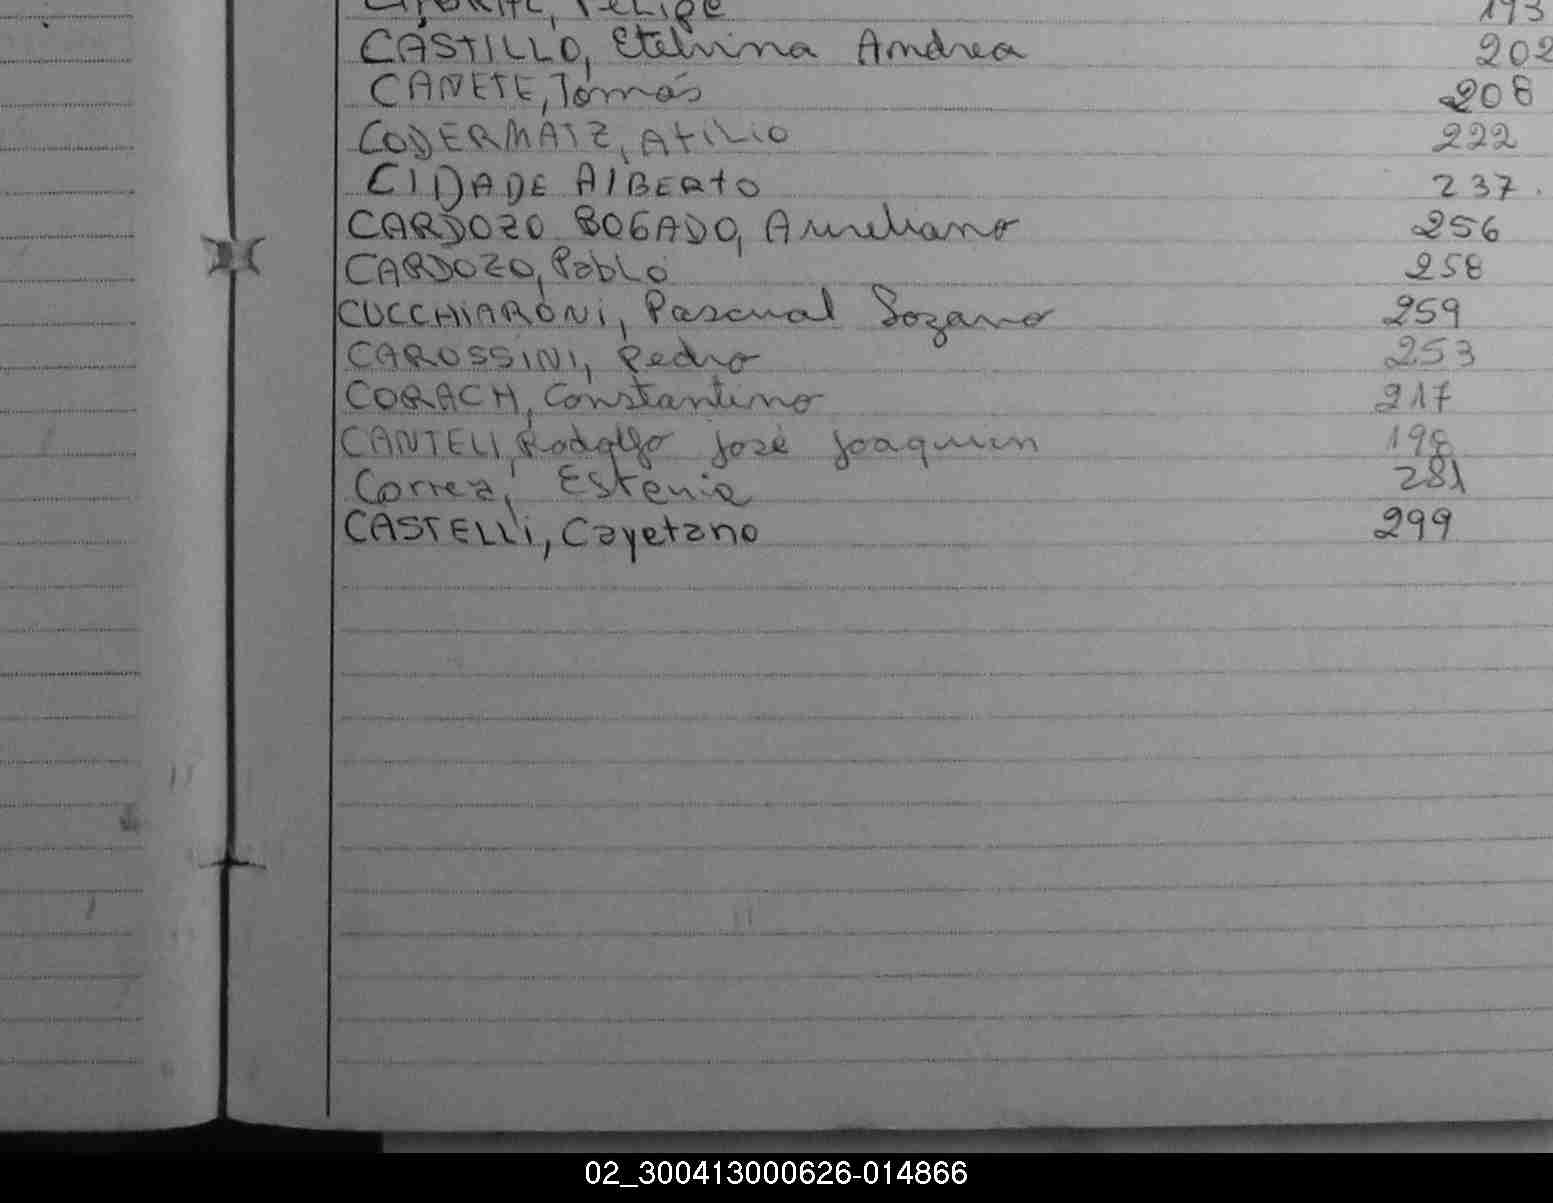 Felipe 193
CASTILLO, Etelvina Andrea 202
CAÑETE, Tomás 208
CODERMATZ, Atilio 222
CIDADE AlBERTO 237.
CARDOZO BOGADO, Aureliano 256
CARDOZO, Pablo 258
CUCCHIARONI, Pascual Sozano 259
CAROSSINI, Pedro 253
CORACH, Constantino 217
CANTELI, Rodolfo José Joaquin 198
Correa, Estenia 281
CASTELLi, Cayetano 299
02_300413000626-014866